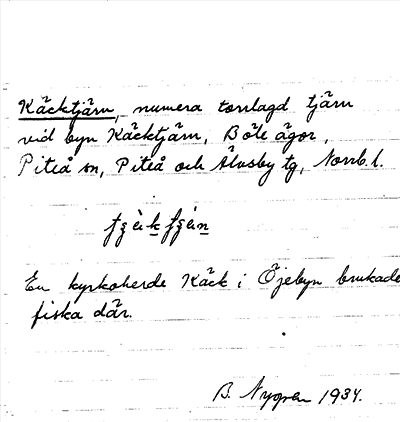 Käcktjärn, numera torrlagd tjärn
vid byn Käcktjärn, Böle ägor,
Piteå sn, Piteå och Älvsby tg, Norrb. l.
En kyrkoherde Käck i Öjebyn brukade
fiska där.
B. Nygren 1934.